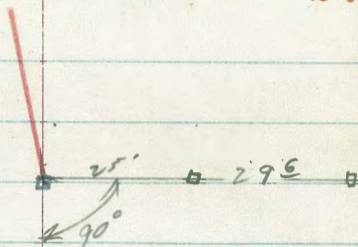 25' 29 6
90°